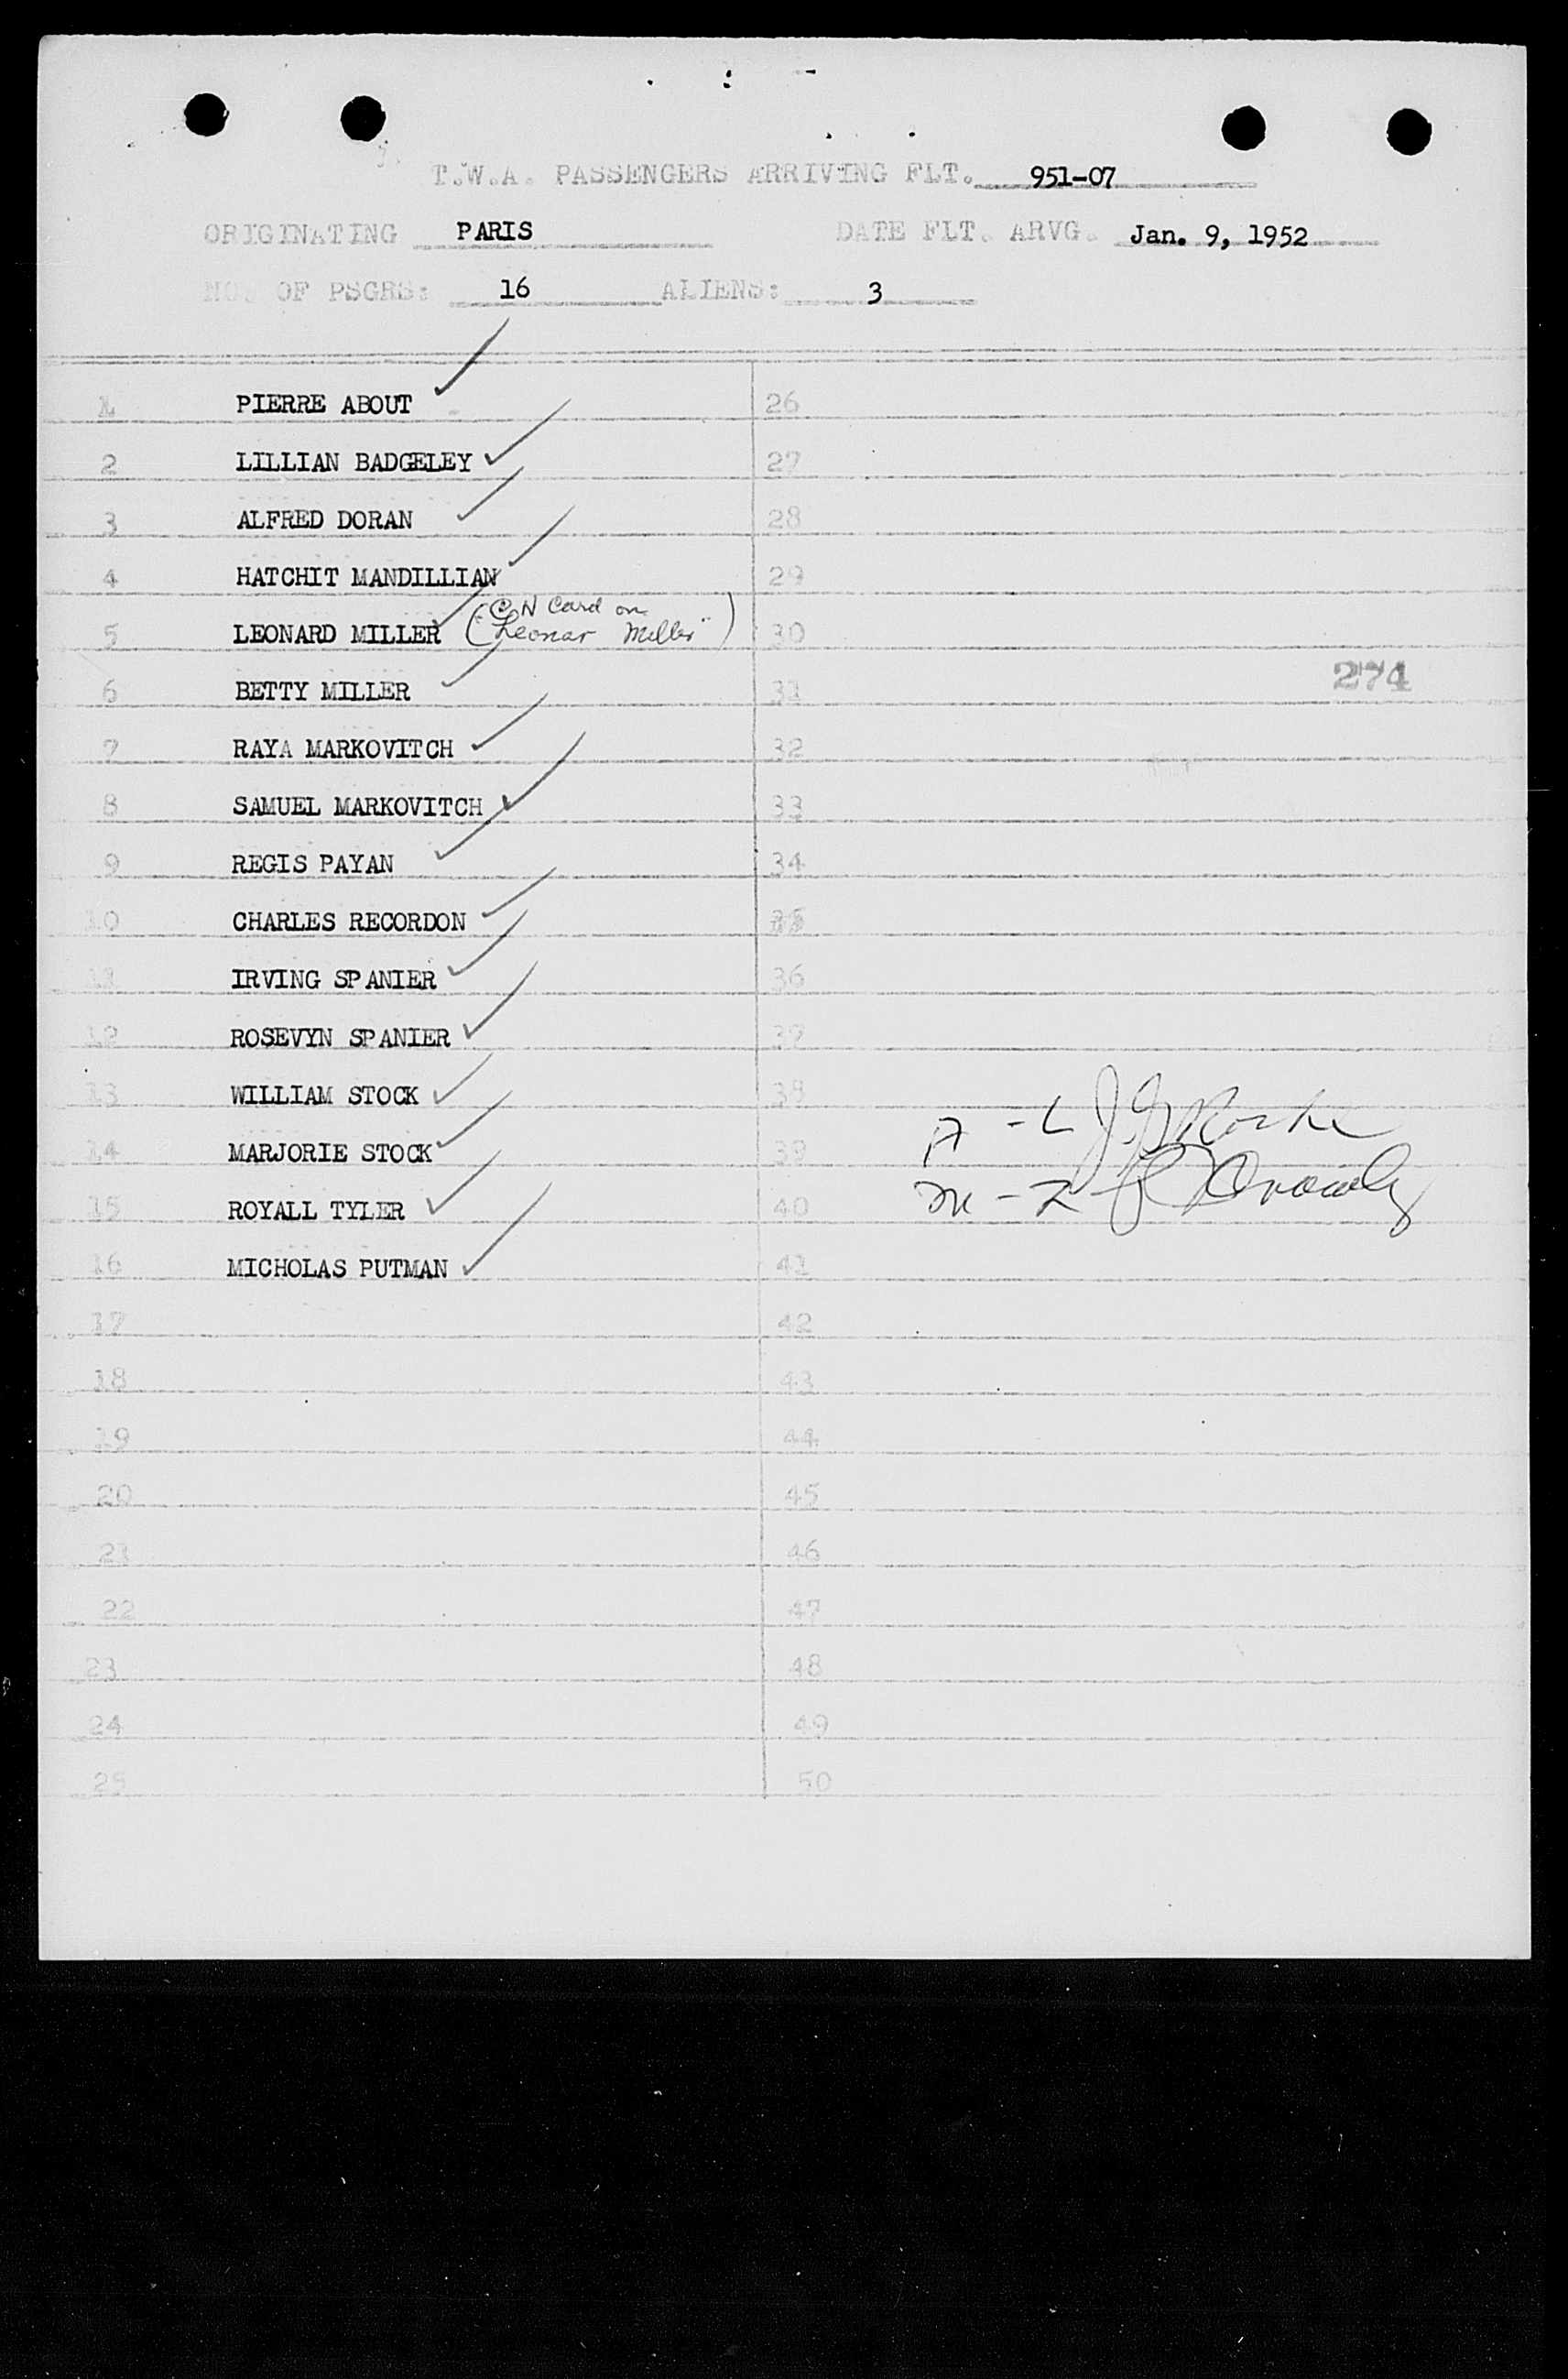 T.W.A. PASSENGERS ARRIVING FLT. 951-07
ORIGINATING PARIS DATE FLT. ARVG. Jan. 9, 1952
NO. OF PSGRS: 16 ALIENS: 3
1 PIERRE ABOUT 26
2 LILLIAN BADGELEY 27
3 ALFRED DORAN 28
4 HATCHIT MANDILLIAN 29
5 LEONARD MILLER (CN Card on "Leonar Miller") 30
6 BETTY MILLER 31
274
7 RAYA MARKOVITCH 32
8 SAMUEL MARKOVITCH 33
9 REGIS PAYAN 34
10 CHARLES RECORDON 35
11 IRVING SPANIER 36
12 ROSEVYN SPANIER 37
13 WILLIAM STOCK 38
A - L J.
14 MARJORIE STOCK 39
M - Z
15 ROYALL TYLER 40
16 MICHOLAS PUTMAN 41
17 42
18 43
19 44
20 45
21 46
22 47
23 48
24 49
25 50